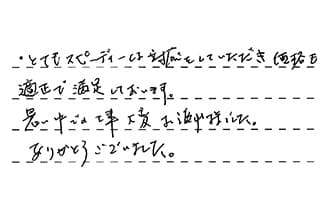 ・とてもスピーディーな対応をしていただき価格も
適正で満足しております。
暑い中での工事大変お疲れ様でした。
ありがとうございました。